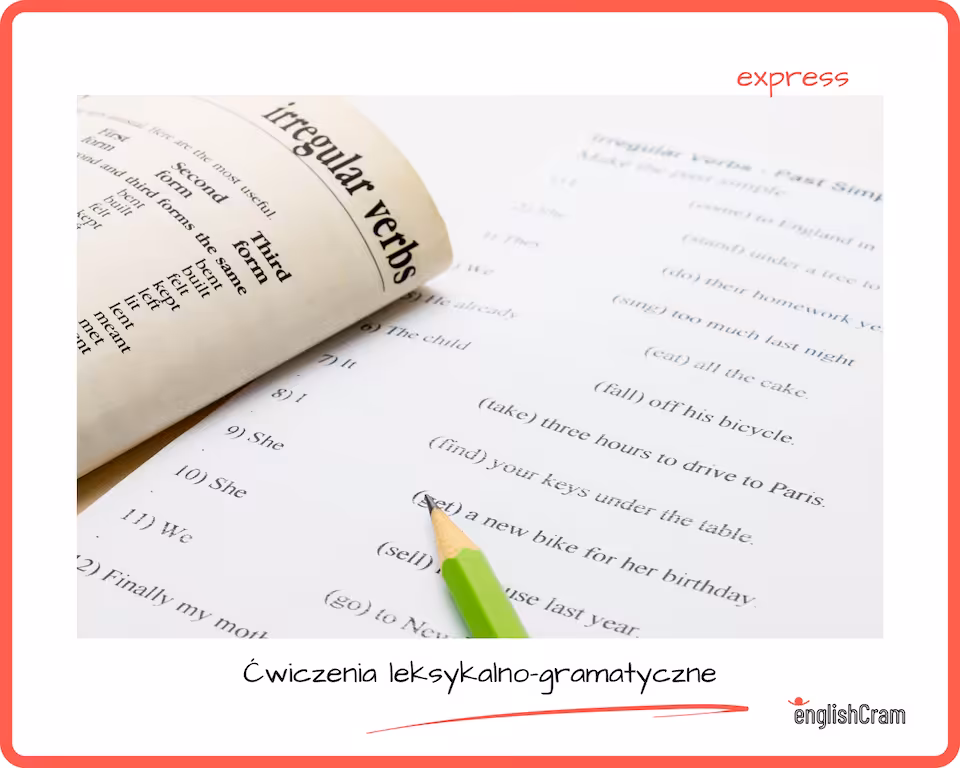 express
irregular verbs
Here are the most useful.
First form
Second form
Third form
and third forms the same
bent bent
built built
felt felt
kept kept
left
lit
lent
meant
met
irregular verbs - Past Simp
Make the past simple
(come) to England in
She (stand) under a tree to
They (do) their homework ye
We (sung) too much last night
5) He already (eat) all the cake.
6) The child (fall) off his bicycle.
7) It (take) three hours to drive to Paris.
8) I (find) your keys under the table.
9) She (get) a new bike for her birthday.
10) She (sell) use last year.
11) We (go) to New
12) Finally my moth
Ćwiczenia leksykalno-gramatyczne
englishCram